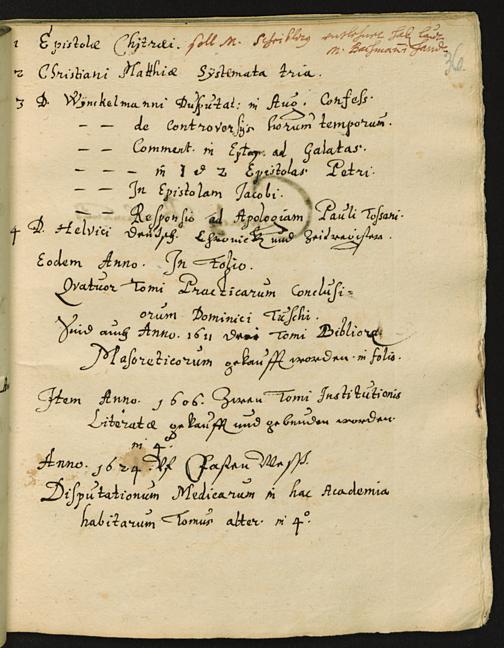 1 Epistolæ Chytræi. soll M.
36
2 Christiani Matthiæ Systemata tria.
3 D. Wynckelmanni Disputat: in Aug. Confess.
— — — de controversijs horum temporum.
— — Comment. in Epist. ad Galatas.
— — — in 1 et 2 Epistolas Petri.
— — In Epistolam Jacobi.
— — Responsio ad Apologiam Pauli Tossani.
4 D. Helvici Chronick und
Eodem Anno. In folio.
Qvatuor Tomi Practicarum Conclusi=
orum Dominici Tuschi.
Seind auch Anno. 1611 drei Tomi Bibliorum
Masoreticorum gekaufft worden in folio.
Item Anno. 1606. Zween Tomi Institutionis
Literatæ gekaufft und gebunden worden
in 4°
Anno. 1624. Vf Fasten Mess.
Disputationum Medicarum in hac Academia
habitarum Tomus alter. in 4°.